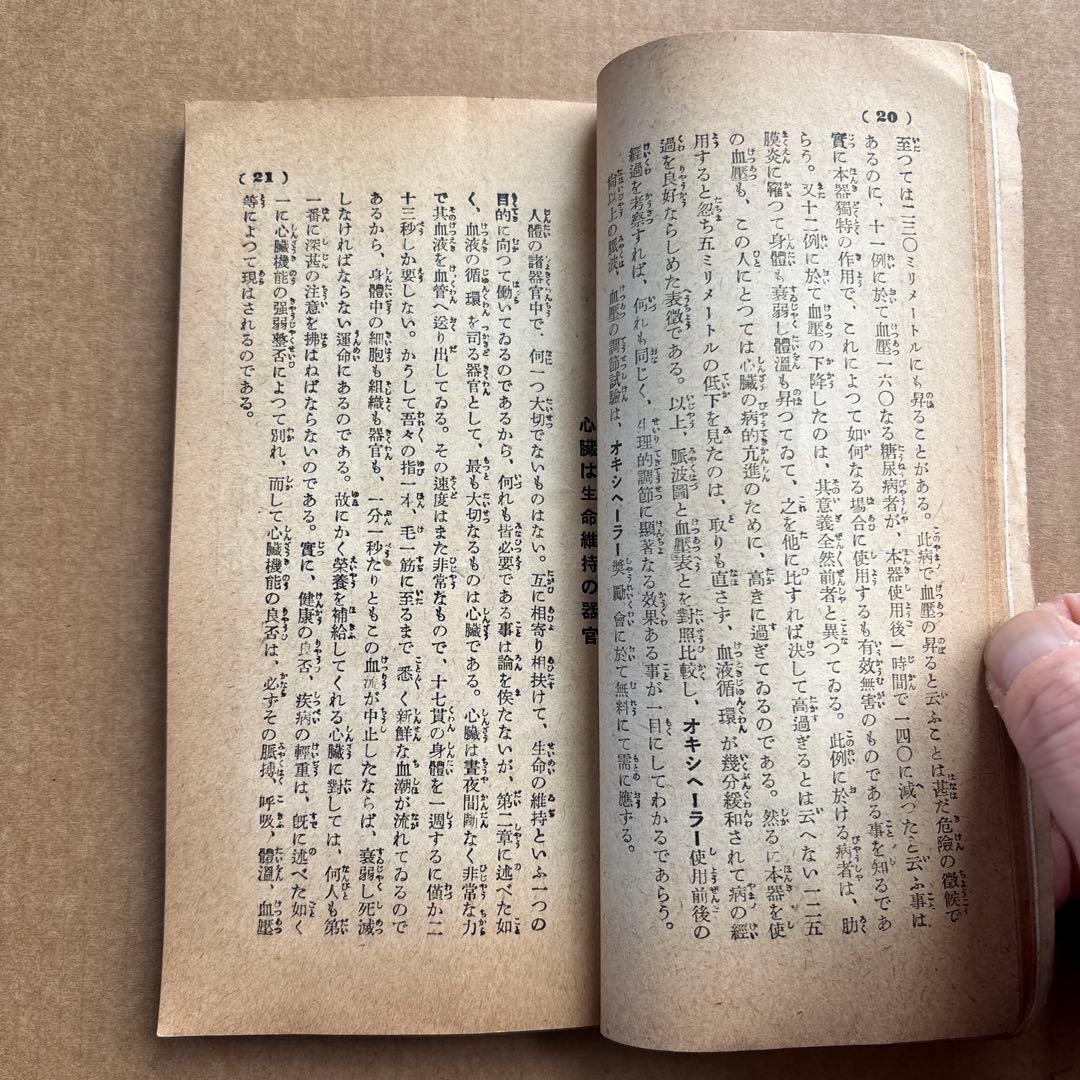 (20)
至つては二三〇ミリメートルにも昇ることがある。此病で血壓の昇ると云ふことは甚だ危險の徵候で
あるのに、十一例に於て血壓一六〇なる糖尿病者が、本器使用後一時間で一四〇に減つたと云ふ事は
實に本器獨特の作用で、これによつて如何なる場合に使用するも有效無害のものである事を知るであ
らう。又十二例に於て血壓の下降したのは、其意義全然前者と異つてゐる。此例に於ける病者は、肋
膜炎に罹つて身體も衰弱し體溫も昇つてゐて、之を他に比すれば決して高過ぎるとは云へない一二五
の血壓も、この人にとつては心臟の病的亢進のために、高きに過ぎてゐるのである。然るに本器を使
用すると忽ち五ミリメートルの低下を見たのは、取りも直さず、血液循環が幾分緩和されて病の經
過を良好ならしめた表徵である。以上、脈波圖と血壓表とを對照比較し、オキシヘーラー使用前後の
經過を考察すれば、何れも同じく、生理的調節に顯著なる效果ある事が一目にしてわかるであらう。
尙以上の脈波、血壓の調節試驗は、オキシヘーラー奬勵會に於て無料にて需に應ずる。
心臟は生命維持の器官
人體の諸器官中で、何一つ大切でないものはない。互に相寄り相扶けて、生命の維持といふ一つの
目的に向つて働いてゐるのであるから、何れも皆必要である事は論を俟たないが、第二章に述べた如
く、血液の循環を司る器官として、最も大切なるものは心臟である。心臟は晝夜間斷なく非常な力
で其血液を血管へ送り出してゐる。その速度はまた非常なもので、十七貫の身體を一週するに僅か二
十三秒しか要しない。かうして吾々の指一本、毛一筋に至るまで悉く新鮮な血潮が流れてゐるので
あるから、身體中の細胞も組織も器官も、一分一秒たりともこの血流が中止したならば、衰弱し死滅
しなければならない運命にあるのである。故にかく榮養を補給してくれる心臟に對しては、何人も第
一番に深甚の注意を拂はねばならないのである。實に、健康の良否、疾病の輕重は、旣に述べた如く
一に心臟機能の强弱整否によつて別れ、而して心臟機能の良否は、必ずその脈搏、呼吸、體溫、血壓
等によつて現はされるのである。
(21)